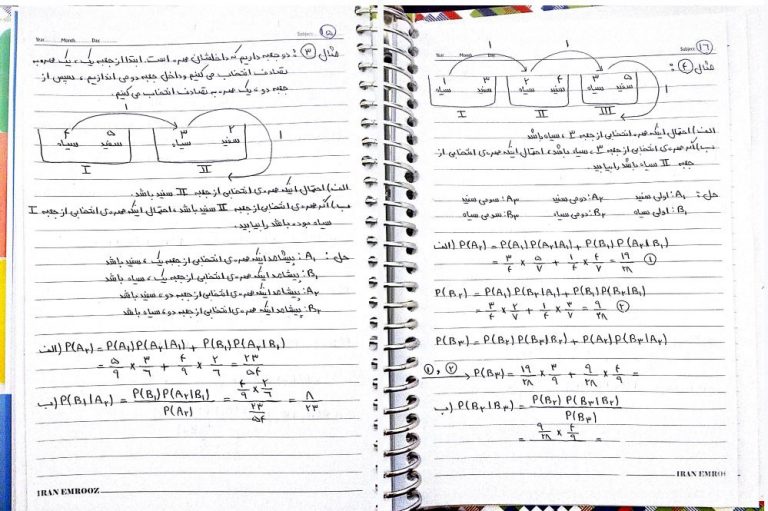 Year. Month. Day. Subject: ۱۵
مثال ۳: دو جعبه داریم که داخلشان مهره است. ابتدا از جعبه یک، یک مهره به
تصادف انتخاب می کنیم و داخل جعبه دو می اندازیم، سپس از
جعبه دو، یک مهره به تصادف انتخاب می کنیم.
۱
۴ سیاه ۵ سفید ۳ سیاه ۲ سفید ۱
I II
الف) احتمال اینکه مهره ی انتخابی از جعبه II سفید باشد.
ب) اگر مهره ی انتخابی از جعبه II سفید باشد، احتمال اینکه مهره ی انتخابی از جعبه I
سیاه بوده باشد را بیابید.
حل: A₁: پیشامد اینکه مهره ی انتخابی از جعبه یک، سفید باشد
B₁: پیشامد اینکه مهره ی انتخابی از جعبه یک، سیاه باشد
A₂: پیشامد اینکه مهره ی انتخابی از جعبه دو، سفید باشد
B₂: پیشامد اینکه مهره ی انتخابی از جعبه دو، سیاه باشد
الف) P(A₂) = P(A₁)P(A₂|A₁) + P(B₁)P(A₂|B₁)
= ۵/۹ × ۳/۶ + ۴/۹ × ۲/۶ = ۲۳/۵۴
ب) P(B₁|A₂) = P(B₁)P(A₂|B₁) / P(A₂) = (۴/۹ × ۲/۶) / (۲۳/۵۴) = ۸/۲۳
IRAN EMROOZ
Year. Month. Day. Subject: ۱۶
مثال ۴:
۱ ۱
۱ سیاه ۳ سفید ۲ سیاه ۴ سفید ۳ سیاه ۵ سفید ۱
I II III
الف) احتمال اینکه مهره انتخابی از جعبه ۳، سیاه باشد
ب) اگر مهره ی انتخابی از جعبه ۳ سیاه باشد، احتمال اینکه مهره ی انتخابی از
جعبه II سیاه باشد را بیابید.
حل: A₁: اولی سفید A₂: دومی سفید A₃: سومی سفید
B₁: اولی سیاه B₂: دومی سیاه B₃: سومی سیاه
الف) P(A₂) = P(A₁)P(A₂|A₁) + P(B₁)P(A₂|B₁)
= ۳/۴ × ۵/۷ + ۱/۴ × ۴/۷ = ۱۹/۲۸ ①
P(B₂) = P(A₁)P(B₂|A₁) + P(B₁)P(B₂|B₁)
= ۳/۴ × ۲/۷ + ۱/۴ × ۳/۷ = ۹/۲۸ ②
P(B₃) = P(B₂)P(B₃|B₂) + P(A₂)P(B₃|A₂)
①,② → P(B₃) = ۱۹/۲۸ × ۳/۹ + ۹/۲۸ × ۴/۹ =
ب) P(B₂|B₃) = P(B₂)P(B₃|B₂) / P(B₃)
= ۹/۲۸ × ۴/۹ =
IRAN EMRO